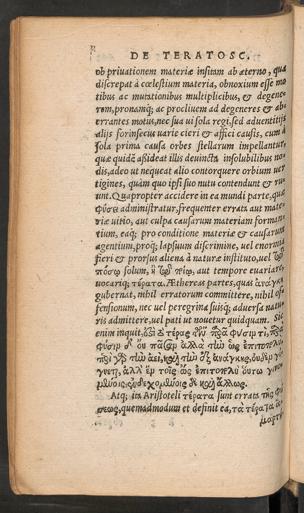 DE TERATOSC.
ob privationem materiæ insitam ab æterno, qua
discrepat à cœlestium materia, obnoxium esse mo
tibus ac mutationibus multiplicibus, & degene-
rem, pronamq; ac procliuem ad degeneres & ab-
errantes motus, nec sua ui sola regi, sed aduentitijs
alijs forinsecus uarie cieri & affici causis, cum à
sola prima causa orbes stellarum impellantur,
quæ quidē aßideat illis deuincta insolubilibus no-
dis, adeo ut nequeat alio contorquere orbium uer
tigines, quàm quo ipsi suo nutu contendunt & ru
unt. Quapropter accidere in ea mundi parte, quæ
administratur, frequenter errata aut mate-
riæ uitio, aut culpa causarum materiam forman-
tium, eaq; pro conditione materiæ & causarum
agentium, proq; lapsuum discrimine, uel enormia
fieri & prorsus aliena à naturæ instituto, uel
solum, aut tempore euariare,
uocariq; τέρατα. Æthereas partes, quas ἀνάγκη
gubernat, nihil erratorum committere, nihil of-
fensionum, nec uel peregrina suisq; aduersa natu-
ris admittere, uel pati ut noxetur quidquam. Sic
enim inquit, τέρας παρὰ φύσιν τι, παρὰ
φύσιν δ' οὐ πᾶσαν ἀλλὰ τὴν ὡς ἐπιτοπολὺ
τὴν ἀεὶ, καὶ τὴν ἐξ ἀνάγκης, οὐδὲν γί-
νεται, ἀλλ' ἐν τοῖς ὡς ἐπιτοπολὺ οὕτω γινο
μένοις, ἐνδεχομένοις δὲ καὶ ἄλλως.
Atq; ita Aristoteli τέρατα sunt errata τῆς φύ
σεως, quemadmodum et definit ea, τὰ τέρατα